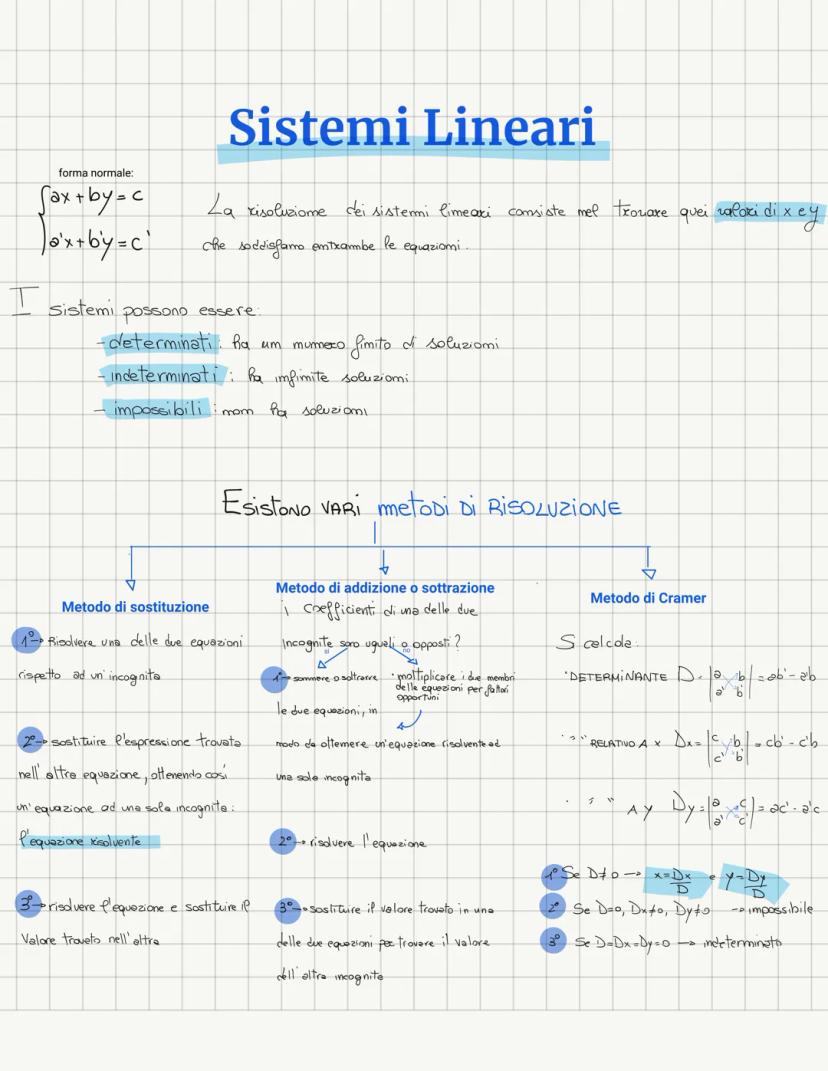 Sistemi Lineari
forma normale:
ax + by = c
a'x + b'y = c'
La risoluzione dei sistemi lineari consiste nel trovare quei valori di x e y
che soddisfano entrambe le equazioni.
I sistemi possono essere:
- determinati: ha un numero finito di soluzioni
- indeterminati: ha infinite soluzioni
- impossibili: non ha soluzioni
Esistono vari metodi di risoluzione
Metodo di sostituzione
1° → Risolvere una delle due equazioni
rispetto ad un'incognita
2° → sostituire l'espressione trovata
nell'altra equazione, ottenendo così
un'equazione ad una sola incognita:
l'equazione risolvente
3° → risolvere l'equazione e sostituire il
valore trovato nell'altra
Metodo di addizione o sottrazione
i coefficienti di una delle due
incognite sono uguali o opposti?
si
no
1° → sommare o sottrarre
le due equazioni, in
· moltiplicare i due membri
delle equazioni per fattori
opportuni
modo da ottenere un'equazione risolvente ad
una sola incognita
2° → risolvere l'equazione
3° → sostituire il valore trovato in una
delle due equazioni per trovare il valore
dell'altra incognita
Metodo di Cramer
S calcola:
· DETERMINANTE D = |a b a' b'| = ab' - a'b
· " " RELATIVO A x Dx = |c b c' b'| = cb' - c'b
· " " A y Dy = |a c a' c'| = ac' - a'c
1° Se D ≠ 0 → x = Dx/D e y = Dy/D
2° Se D=0, Dx≠0, Dy≠0 → impossibile
3° Se D=Dx=Dy=0 → indeterminato